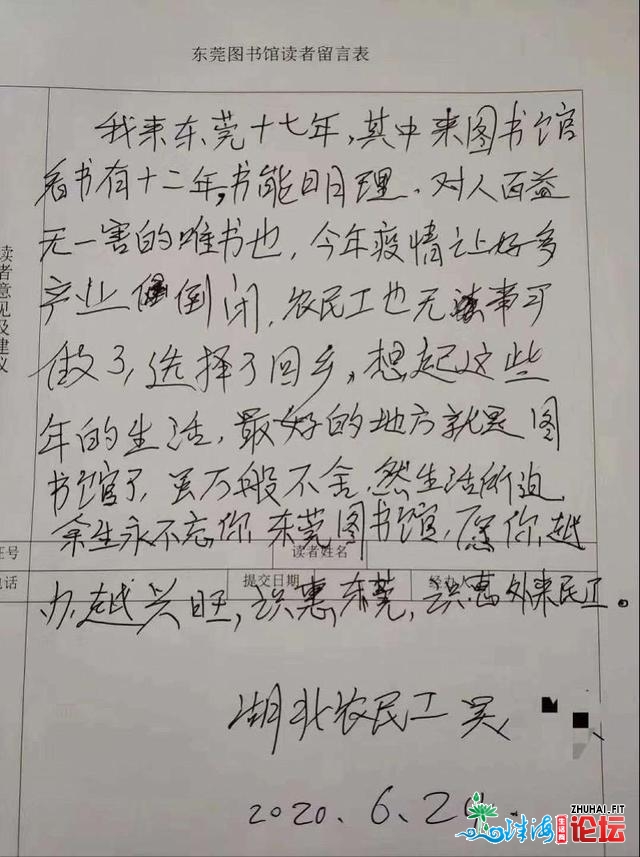 东莞图书馆读者留言表
我来东莞十七年,其中来图书馆
看书有十二年,书能明理、对人百益
无一害的唯书也,今年疫情让好多
产业倒闭,农民工也无事可
做了,选择了回乡,想起这些
年的生活,最好的地方就是图
书馆了,虽万般不舍,然生活所迫,
余生永不忘你,东莞图书馆,愿你越
办越兴旺,识惠东莞,识惠外来民工。
读者意见及建议
证号
读者姓名
电话
提交日期
经办人
湖北农民工 吴
2020.6.24.
ZHUHAI.FIT
珠海
生活网
论坛